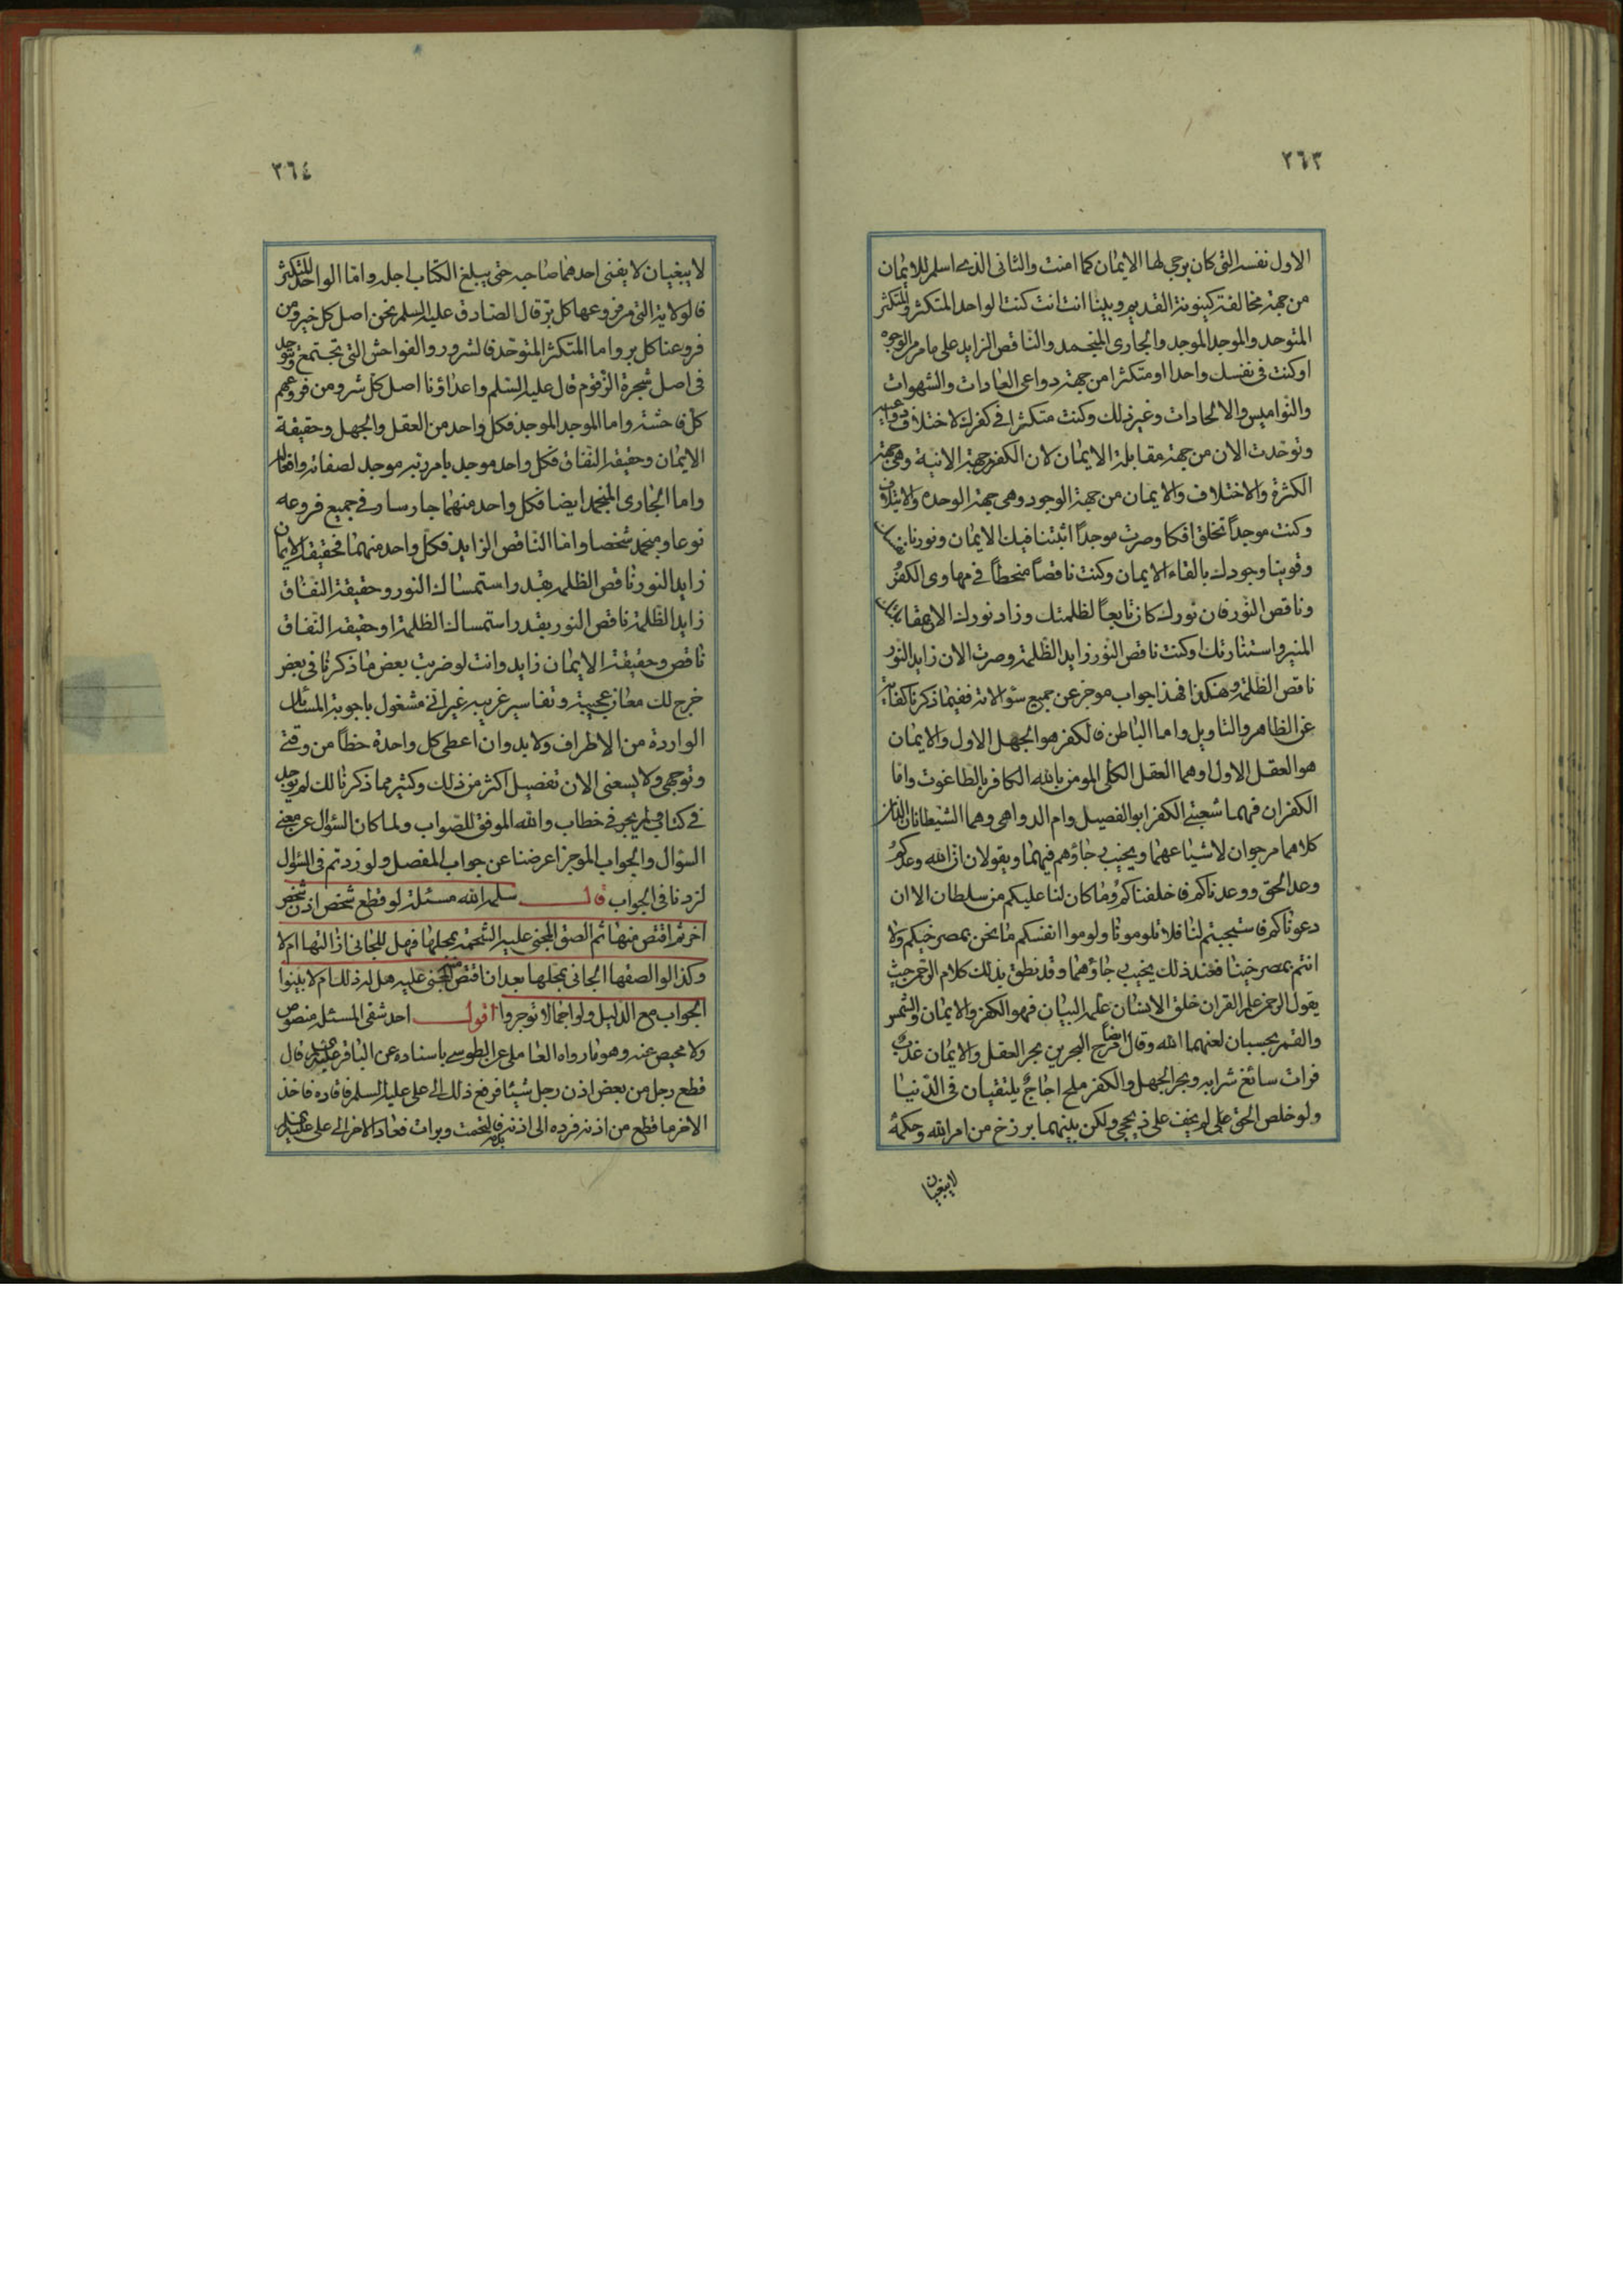 ٢٦٣
الاول نفسه التی کان یرجی لها الایمان کما امنت والثانی الذی اسلم للایمان
من جهة مخالفة کینونة القدیم وبینا انت انت کنت الواحد المتکثر والمتکثر
المتوحد والموجد الموجد والجاری المنجمد والناقص الزاید علی ما مر من الوجوه
او کنت فی نفسک واحدا او متکثرا من جهة دواعی العادات والشهوات
والنوامیس والالحادات وغیر ذلک وکنت متکثرا فی کفرک لاختلاف دواعیه
وتوحدت الان من جهة مقابلة الایمان لان الکفر جهة الانیة وهی جهة
الکثرة والاختلاف والایمان من جهة الوجود وهی جهة الوحدة والایتلاف
وکنت موجداً تخلق افکا وصرت موجداً اثبتنا فیک الایمان ونورنا
وقوینا وجودک بالقاء الایمان وکنت ناقصاً منحطاً فی مهاوی الکفر
وناقص النور فان نورک کان تابعاً لظلمتک وزاد نورک الان
المنیر واستنارتک او کنت ناقص النور زاید الظلمة وصرت الان زاید النور
ناقص الظلمة وهکذا فهذا جواب موجز عن جمیع سؤالاته ففیما ذکرنا کفایة
عن الظاهر والتاویل واما الباطن فالکفر هو الجهل الاول والایمان
هو العقل الاول اوهما العقل الکلی المومن بالله الکافر بالطاغوت واما
الکفران فهما شعبتی الکفر ابو الفصیل وام الدواهی وهما الشیطانان اللذان
کلاهما مرجوان لاشیاعهما ویخیب رجاؤهم فیهما ویقولان ان الله وعدکم
وعد الحق ووعدناکم فاخلفناکم وما کان لنا علیکم من سلطان الا ان
دعوناکم فاستجبتم لنا فلا تلومونا ولوموا انفسکم ما نحن بمصرخیکم ولا
انتم بمصرخینا فعند ذلک یخیب رجاؤهما وقد نطق بذلک کلام الرحمن حیث
یقول الرحمن علم القران خلق الانسان علمه البیان فهو الکفر والایمان والشمس
والقمر بحسبان لعنهما الله وقال ایضا مرج البحرین بحر العقل والایمان عذب
فرات سائغ شرابه وبحر الجهل والکفر ملح اجاج یلتقیان فی الدنیا
ولو خلص الحق علی لم یخف علی ذی حجی ولکن بینهما برزخ من امر الله وحکمه
لایبغیان
٢٦٤
لایبغیان لا یفنی احدهما صاحبه حتی یبلغ الکتاب اجله واما الواحد المتکثر
فالولایة التی من فروعها کل بر قال الصادق علیه السلم نحن اصل کل خیر ومن
فروعنا کل بر واما المتکثر المتوحد فالشرور والفواحش التی تجتمع وتتوحد
فی اصل شجرة الزقوم قال علیه السلم واعداؤنا اصل کل شر ومن فروعهم
کل فاحشة واما الموجد الموجد فکل واحد من العقل والجهل وحقیقة
الایمان وحقیقة النفاق فکل واحد موجد بامر ربه موجد لصفاته وافعاله
واما الجاری المنجمد ایضا فکل واحد منهما جار سار فی جمیع فروعه
نوعا ومنجمد شخصا واما الناقص الزاید فکل واحد منهما فحقیقة الایمان
زاید النور ناقص الظلمة بقدر استمساک النور وحقیقة النفاق
زاید الظلمة ناقص النور بقدر استمساک الظلمة او حقیقة النفاق
ناقص وحقیقة الایمان زاید وانت لو ضربت بعض ما ذکرنا فی بعض
خرج لک معان عجیبة وتفاسیر غریبة غیر انی مشغول باجوبة المسائل
الواردة من الاطراف ولابد وان اعطی کل واحدة حظاً من وقتی
وتوجهی ولا یسعنی الان تفصیل اکثر من ذلک وکثیر مما ذکرنا لک لم یوجد
فی کتاب ولم یجر فی خطاب والله الموفق للصواب ولما کان السؤال عن معنی
السؤال والجواب الموجز اعرضنا عن جواب المفصل ولو زدتم فی السؤال
لزدنا فی الجواب قال سلمه الله مسئلة لو قطع شخص اذن شخص
اخر ثم اقتص منها ثم الصق المجنی علیه الشحمة بمحلها فهل للجانی ازالتها ام لا
وکذا لو الصقها الجانی بمحلها بعد ان اقتص منه المجنی علیه هل له ذلک ام لا بینوا
الجواب مع الدلیل ولو اجمالا توجروا اقول احد شقی المسئلة منصوص
ولا محیص عنه وهو ما رواه العاملی عن الطوسی باسناده عن الباقر علیه السلم قال
قطع رجل من بعض اذن رجل شیئا فرفع ذلک الی علی علیه السلم فاقاده فاخذ
الاخر ما قطع من اذنه فرده الی اذنه بدمه فالتحمت وبرات فعاد الاخر الی علی علیه السلم